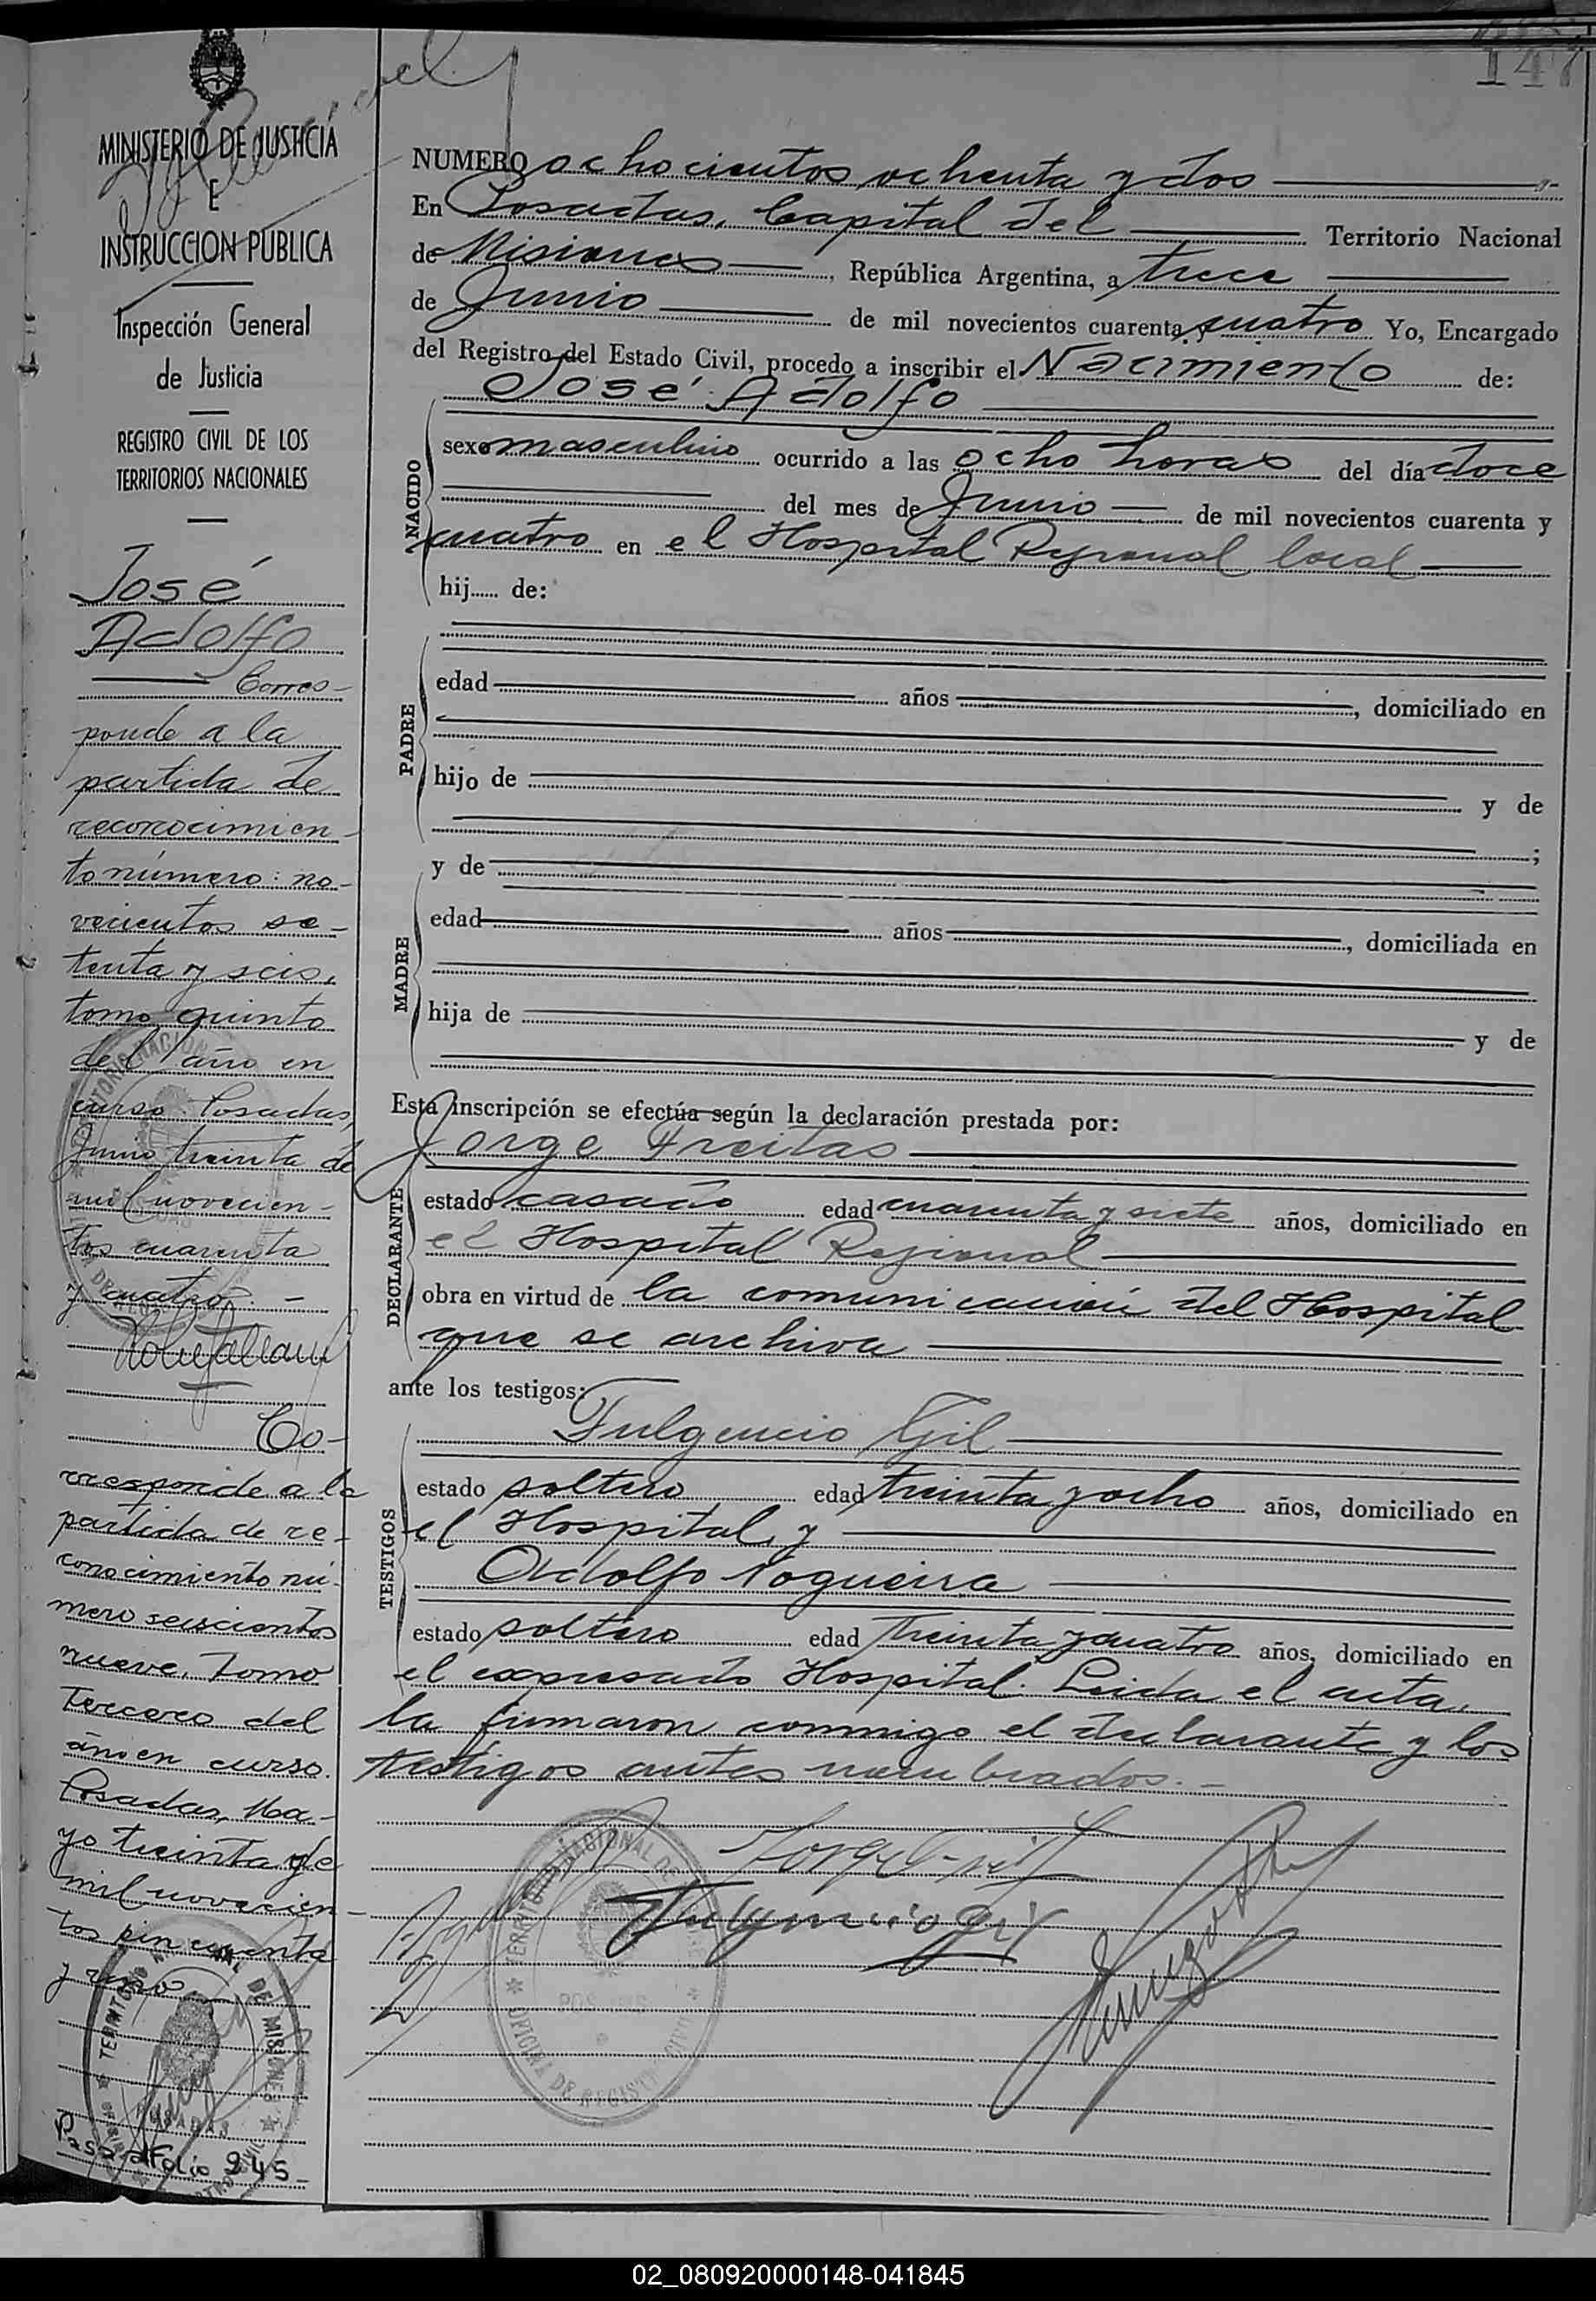 147
MINISTERIO DE JUSTICIA
E
INSTRUCCION PUBLICA
Inspección General
de Justicia
REGISTRO CIVIL DE LOS
TERRITORIOS NACIONALES
José
Adolfo
Corres-
ponde a la
partida de
reconocimien-
to número: no-
vecientos se-
tenta y seis,
tomo quinto
del año en
curso. Posadas,
Junio treinta de
mil novecien-
tos cuarenta
y cuatro. -
Co-
rresponde a la
partida de re-
conocimiento nú-
mero seiscientos
nueve. Tomo
Tercero del
año en curso.
Posadas, Ma-
yo treinta de
mil novecien-
tos cincuenta
y uno
TERRITORIO NACIONAL DE MISIONES
POSADAS
Pasa al Folio 245-
NUMERO ochocientos ochenta y dos
En Posadas, Capital del Territorio Nacional
de Misiones, República Argentina, a trece
de Junio de mil novecientos cuarenta y cuatro Yo, Encargado
del Registro del Estado Civil, procedo a inscribir el Nacimiento de:
José Adolfo
NACIDO
sexo masculino ocurrido a las ocho horas del día doce
del mes de Junio de mil novecientos cuarenta y
cuatro en el Hospital Regional local
hij...... de:
PADRE
edad años, domiciliado en
hijo de y de
;
y de
MADRE
edad años, domiciliada en
hija de y de
Esta inscripción se efectúa según la declaración prestada por:
Jorge Freitas
DECLARANTE
estado casado edad cuarenta y siete años, domiciliado en
el Hospital Regional
obra en virtud de la comunicación del Hospital
que se archiva
ante los testigos:
Fulgencio Gil
TESTIGOS
estado soltero edad treinta y ocho años, domiciliado en
el Hospital, y
Adolfo Nogueira
estado soltero edad treinta y cuatro años, domiciliado en
el expresado Hospital. Leida el acta,
la firmaron conmigo el declarante y los
testigos antes nombrados. -
Fulgencio Gil
TERRITORIO NACIONAL DE
POSADAS
OFICINA DE REGISTRO CIVIL
02_080920000148-041845